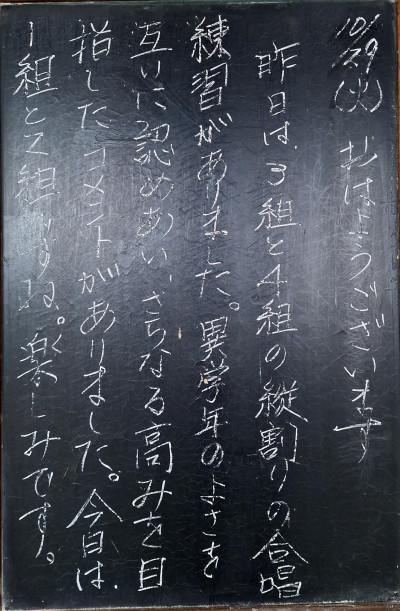 10/29(火) おはようございます
昨日は、3組と4組の縦割りの合唱
練習がありました。異学年のよさを
互いに認めあい、さらなる高みを目
指したコメントがありました。今日は、
1組と2組ですね。楽しみです。